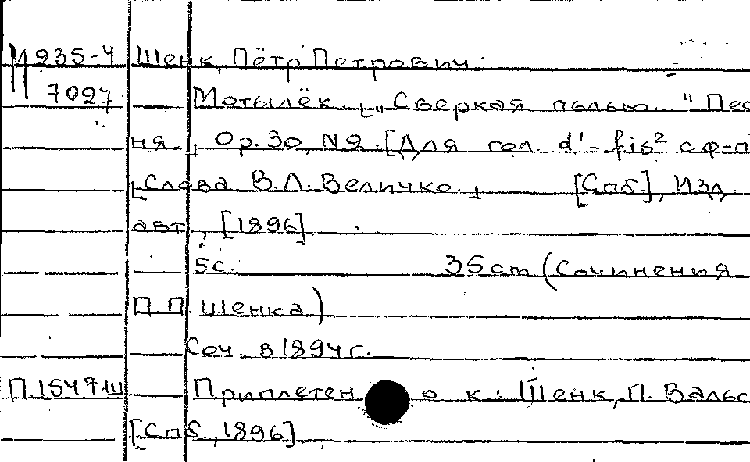 М 935-4 Шенк, Пётр Петрович.
7027 Мотылёк. „Сверкая пылью..." Пес
ня., Ор. 30, №2. [Для гол. d¹-fis² с ф=п
Слова В.Л. Величко. [Спб], Изд.
авт., [1896]
5с. 35 cm (Сочинения
П.П. Шенка)
Соч. в 1894 г.
П.15479ш Приплетено к: Шенк, П. Вальс
[Спб, 1896]